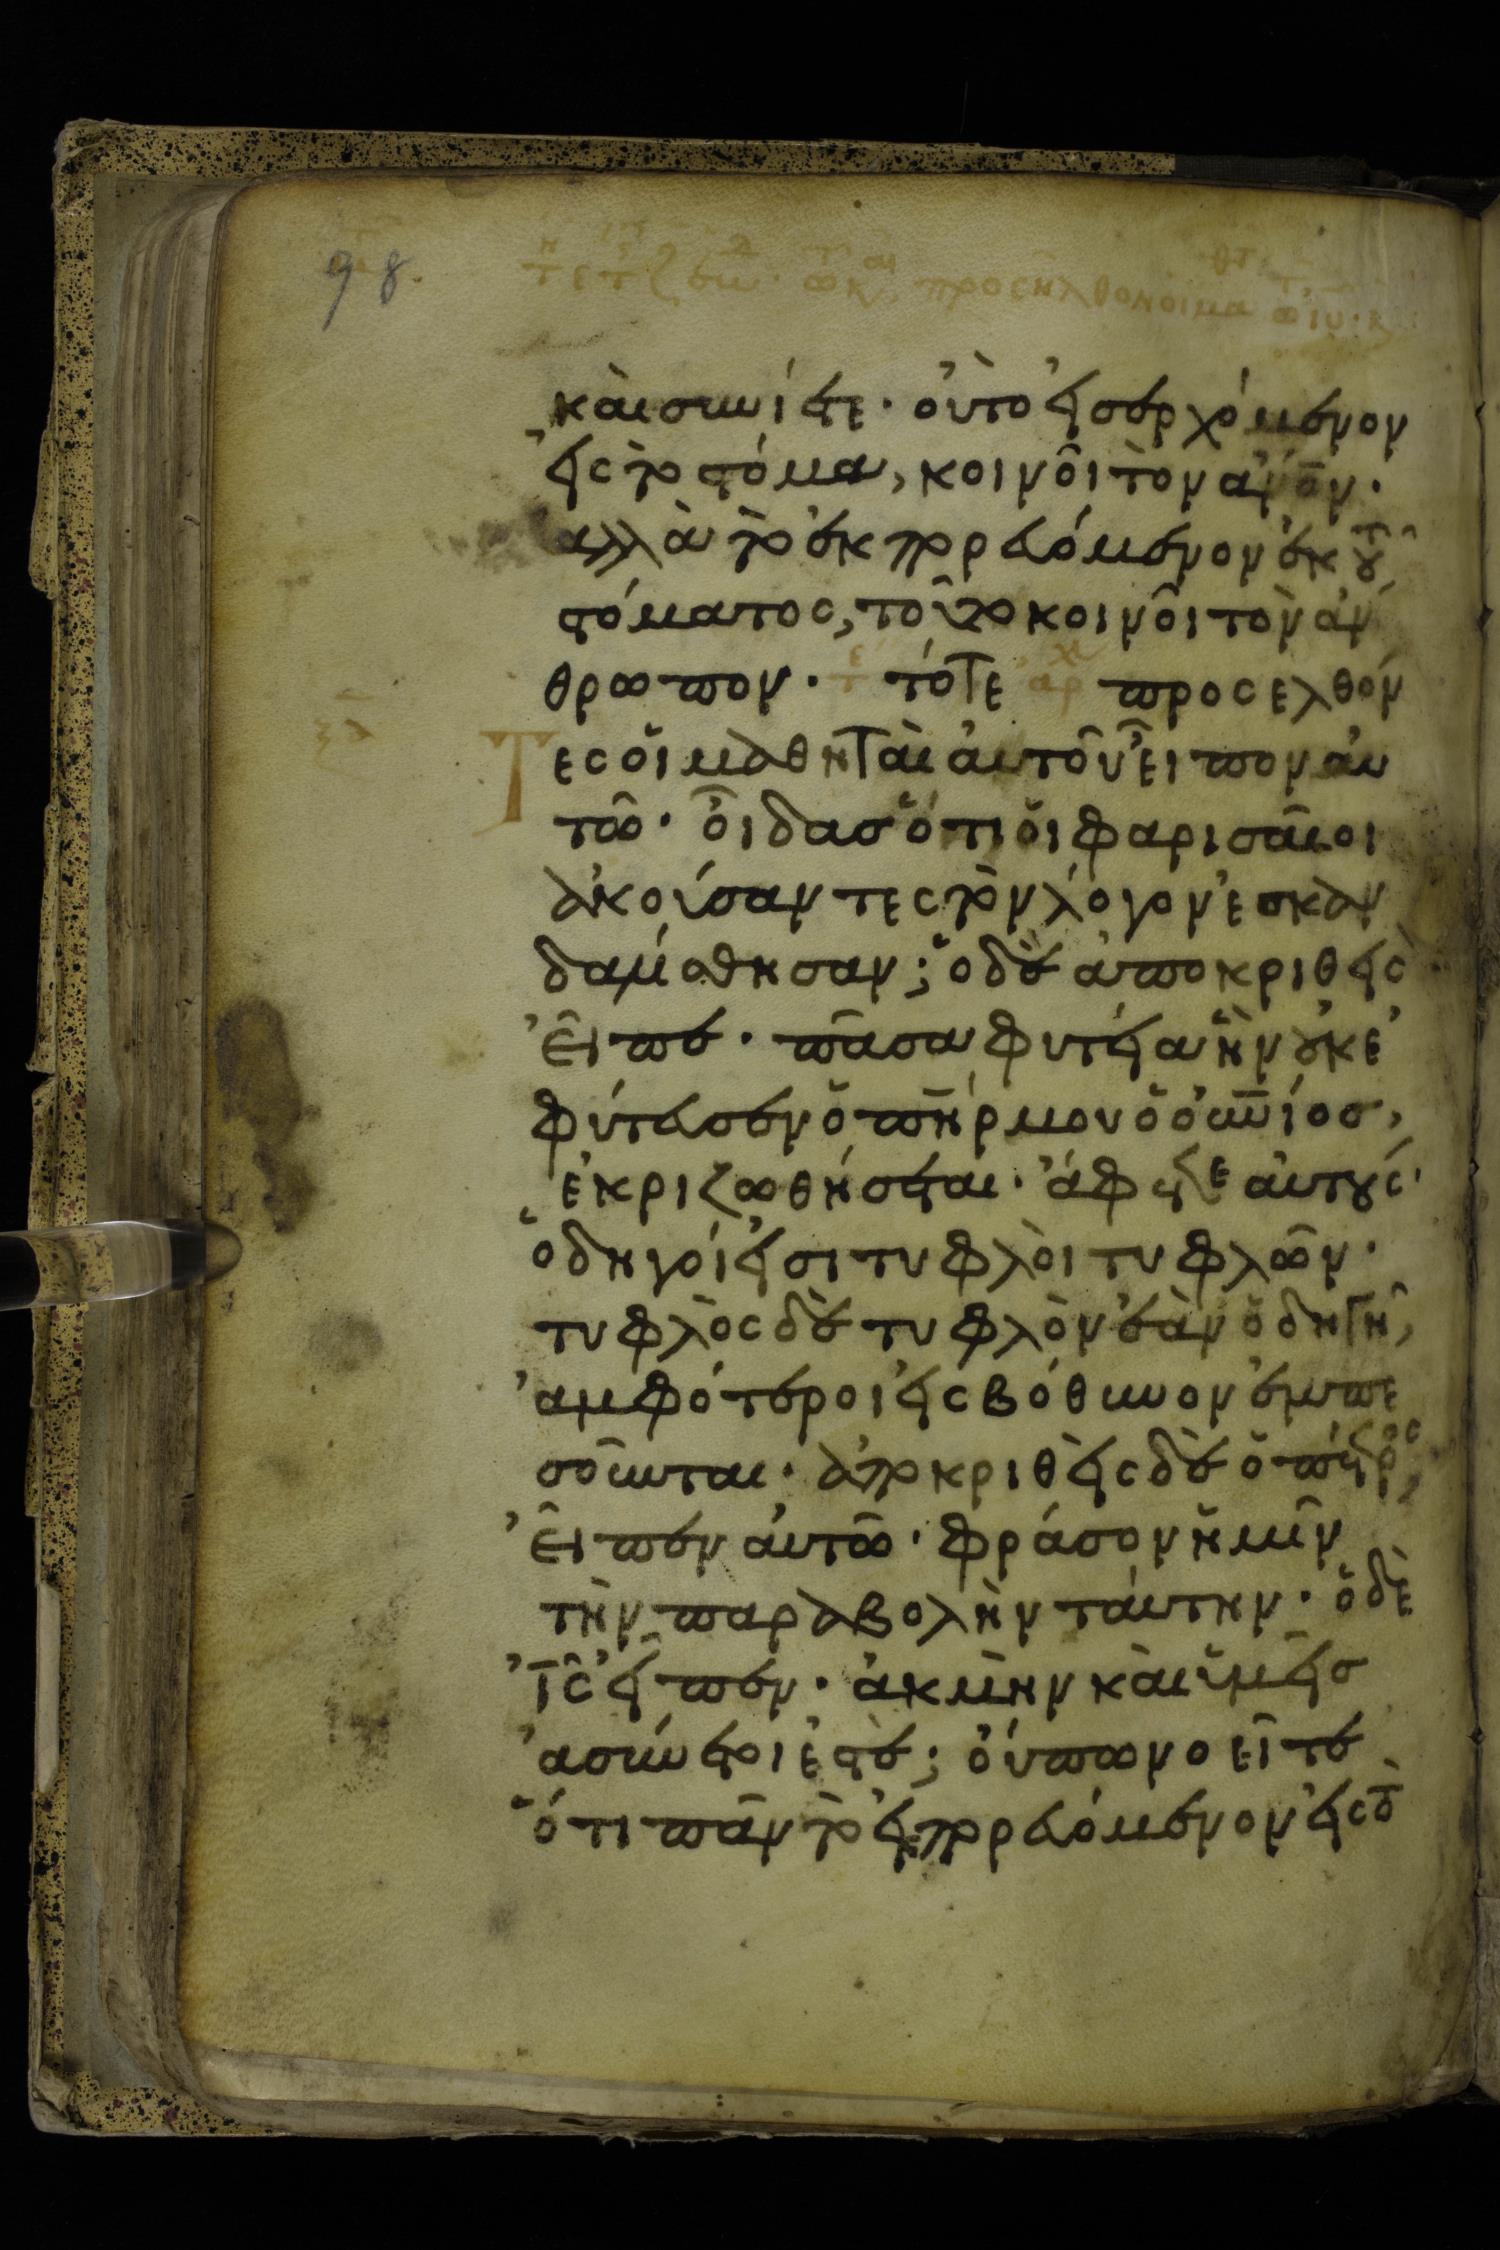 98.
καὶ συνίετε· οὐ τὸ εἰσερχόμενον
εἰς τὸ στόμα, κοινοῖ τὸν ἄνον·
ἀλλὰ τὸ ἐκπορευόμενον ἐκ τοῦ
στόματος, τοῦτο κοινοῖ τὸν ἄν
θρωπον· τότε προσελθόν
τες οἱ μαθηταὶ αὐτοῦ εἶπον αὐ
τῶ· οἶδας ὅτι οἱ φαρισαῖοι
ἀκούσαντες τὸν λόγον ἐσκαν
δαλίσθησαν; ὁ δὲ ἀποκριθεὶς
εἶπε· πᾶσα φυτεία ἣν οὐκ ἐ
φύτευσεν ὁ πηρ μου ὁ οὐνιος,
ἐκριζωθήσεται· ἄφετε αὐτούς·
ὁδηγοί εἰσι τυφλοὶ τυφλῶν·
τυφλὸς δὲ τυφλὸν ἐὰν ὁδηγῆ,
ἀμφότεροι εἰς βόθυνον ἐμπε
σοῦνται· ἀποκριθεὶς δὲ ὁ πέτρος,
εἶπεν αὐτῶ· φράσον ἡμῖν
τὴν παραβολὴν ταύτην· ὁ δὲ
ἰς εἶπεν· ἀκμὴν καὶ ὑμεῖς
ἀσύνετοι ἐστέ; οὔπω νοεῖτε
ὅτι πᾶν τὸ εἰσπορευόμενον εἰς τὸ